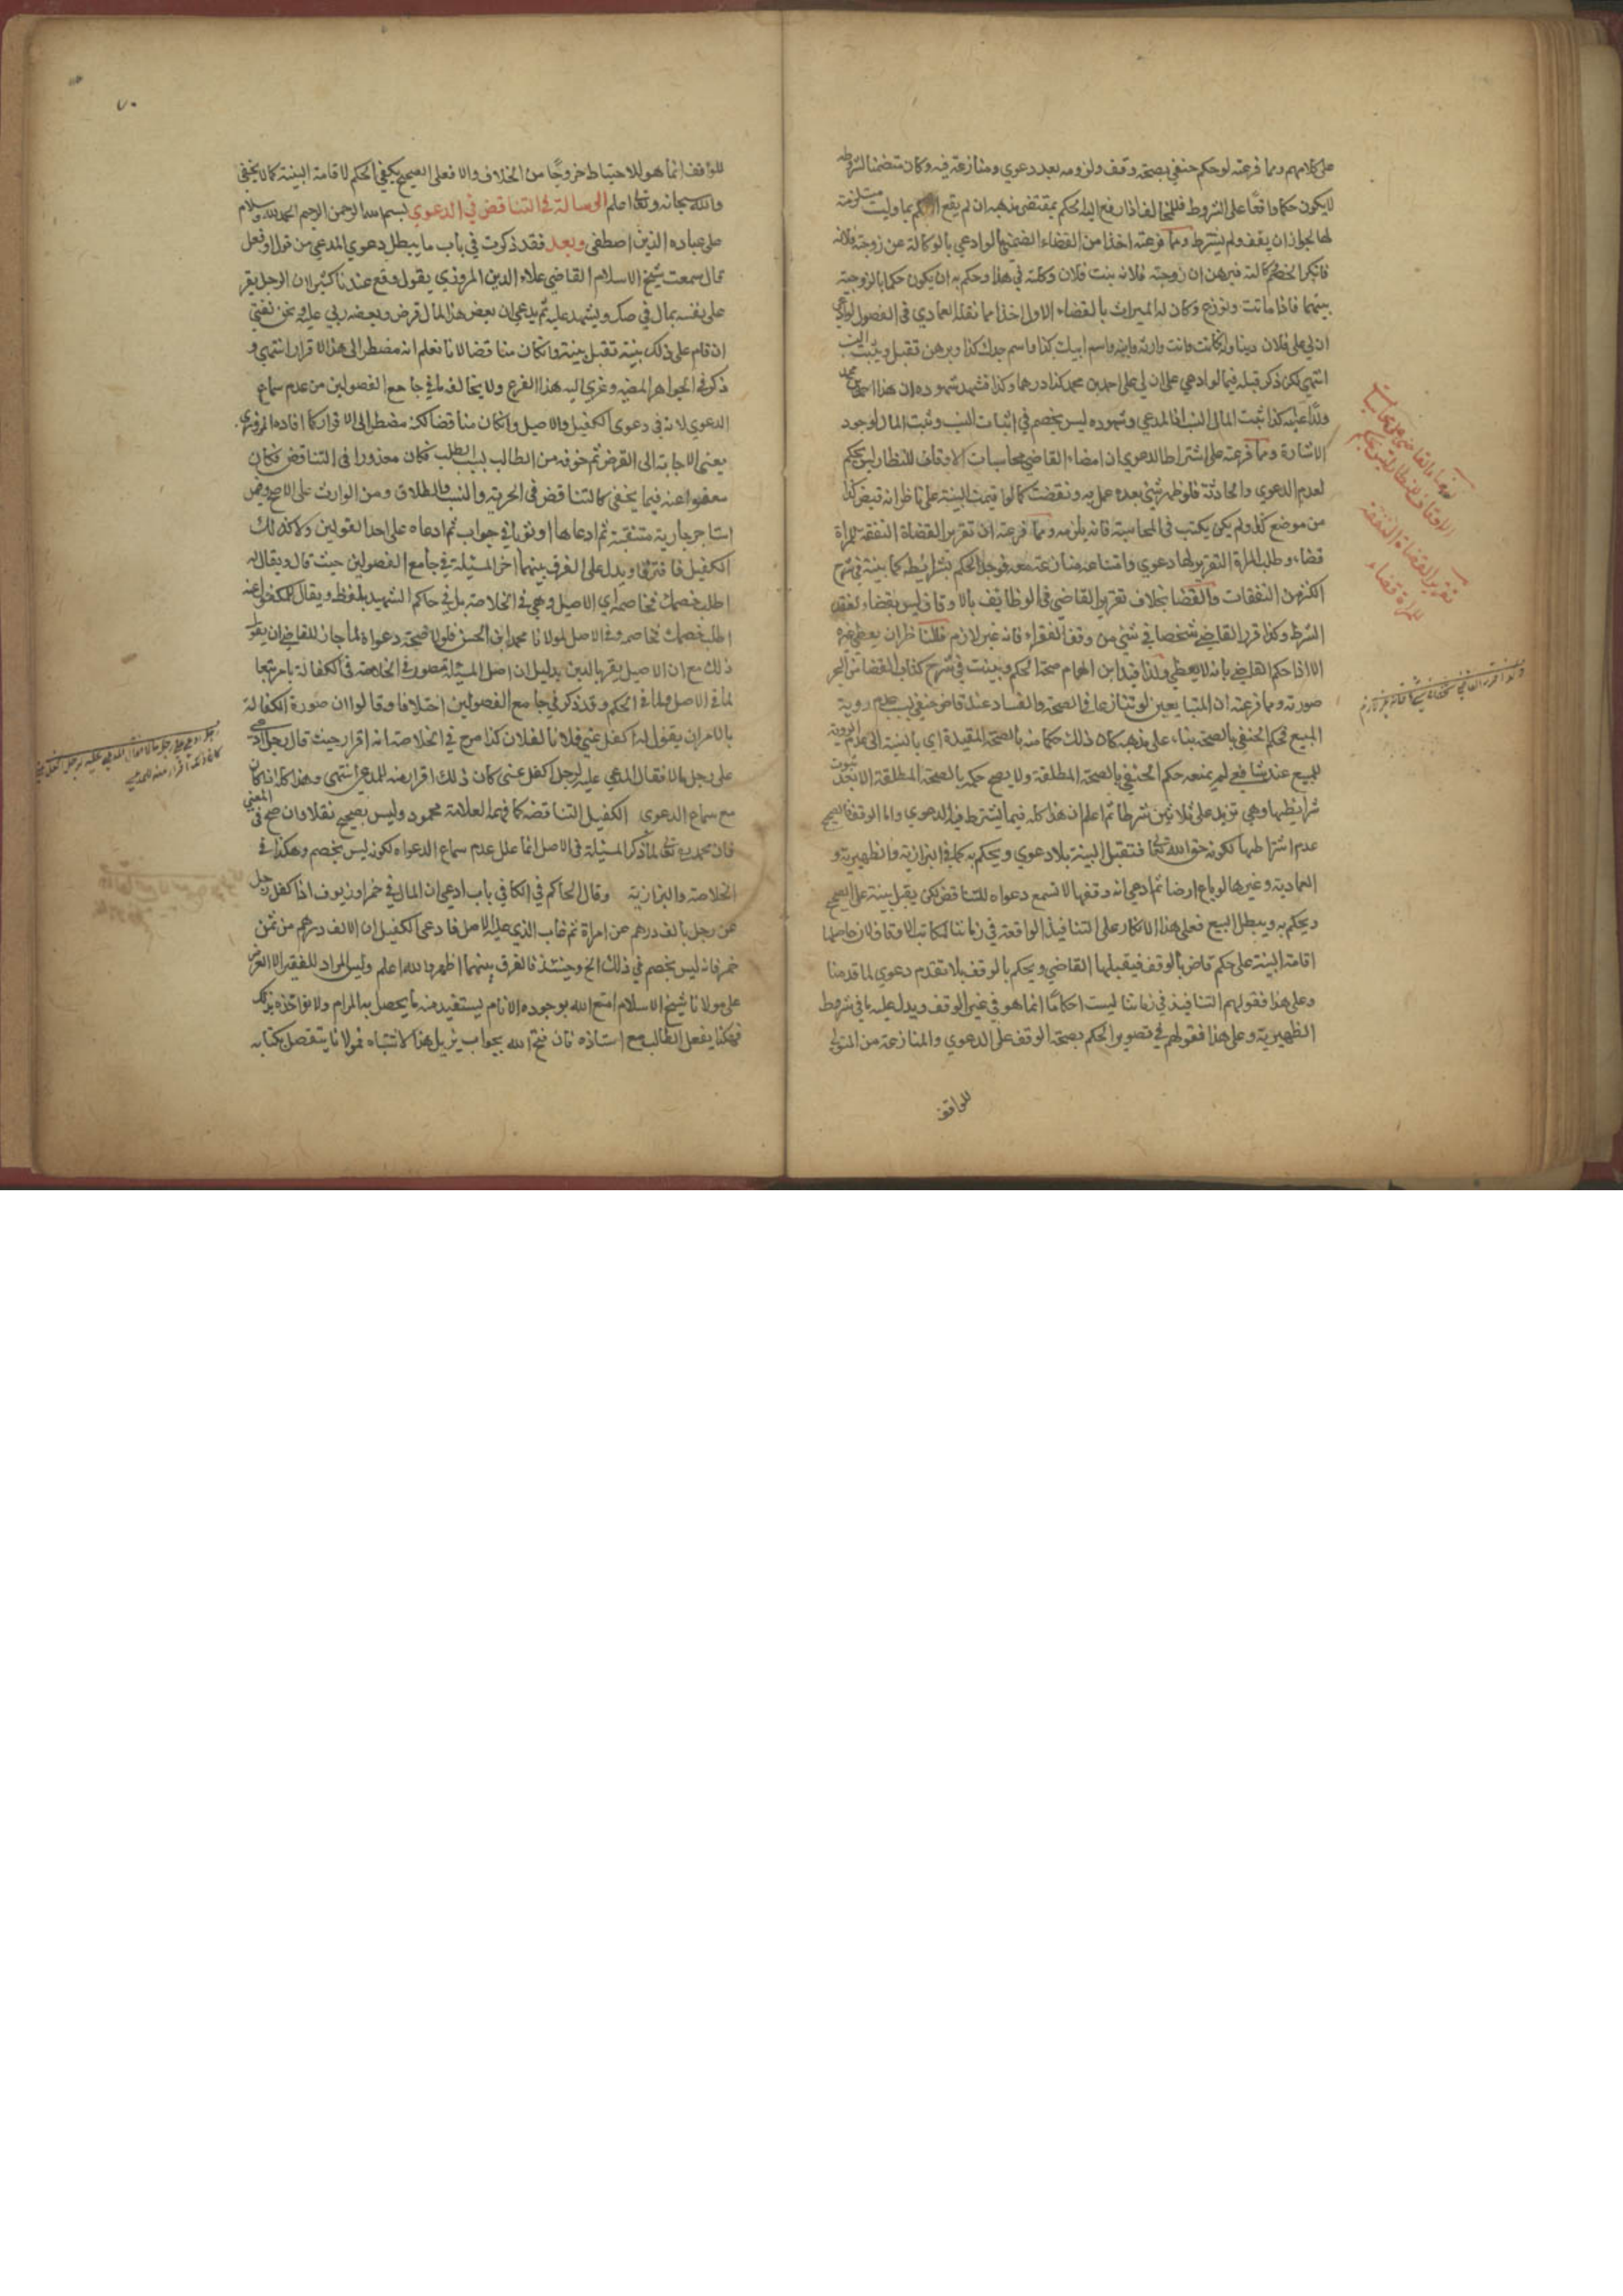 على كلامهم ومما فرعته لو حكم حنفي بصحة وقف ولزومه بعد دعوي ومنازعة فيه وكان متضمنا لشروطه
لا يكون حكما واقعا على الشروط فللمخالف اذا رفع اليه الحكم بمقتضى مذهبه ان لم يقع الحكم بها وليت مستلزمة
لها لجواز ان يقف ولم يشترط ومما فرعته اخذا من القضاء الضمني لو ادعي بالوكالة عن زوجته فلانه
فانكر الخصم وكالته فبرهن ان زوجته فلانه بنت فلان وكلته في هذا وحكم به ان يكون حكما بالزوجية
بينهما فاذا ماتت ونوزع وكان له الميراث بالقضاء الاول اخذا مما نقله العمادي في الفصول لو ادعي
ان لي على فلان دينا وانه مات وانت وارثه وابنه واسم ابيك كذا واسم جدك كذا وبرهن تقبل ويثبت النسب
انتهي لكن ذكر قبله فيما لو ادعي على ان لي على احمد بن محمد كذا درهما وكذا فشهد شهوده ان هذا احمد بن محمد
وله عليه كذا ثبت المال لا النسب اذا المدعي وشهوده ليس بخصم في اثبات النسب وثبت المال لوجود
الاشارة ومما فرعته على اشتراط الدعوي ان امضاء القاضي محاسبات الاوقاف للنظار ليس بحكم
لعدم الدعوي والحادثة فلو ظهر شيء بعده عمل به ونقضت كما لو اقيمت البينة على ناظر انه قبض كذا
من موضع كذا ولم يكن يكتب في المحاسبة فانه يلزمه ومما فرعته ان تقرير القضاة النفقة للمراة
قضاء وطلب المراة التقرير لها دعوي وامتناعه منازعة معه فوجد الحكم بشرايطه كما بينته في شرح
الكنز من النفقات والقضا بخلاف تقرير القاضي في الوظايف بالاوقاف ليس بقضاء لفقد
الشرط وكذا قرر القاضي شخصا في شئ من وقف الفقراء فانه غير لازم فللناظر ان يعطي غيره
الا اذا حكم القاضي بانه لا يعطي ولذا قيد ابن الهمام صحة الحكم وبينت في شرح كتاب القضا من البحر
صورته ومما فرعته ان المتبايعين لو تنازعا في الصحة والفساد عند قاض حنفي بسبب عدم روية
المبيع فحكم الحنفي بالصحة بناء على مذهبه كان ذلك حكما منه بالصحة المقيدة اي بالنسبة الى عدم الروية
للمبيع عند شافعي لم يمنعه حكم الحنفي بالصحة المطلقة ولا يصح حكمه بالصحة المطلقة الا بعد ثبوت
شرايطها وهي تزيد على ثلاثين شرطا ثم اعلم ان هذا كله فيما يشترط فيه الدعوي واما الوقف فالصحيح
عدم اشتراطها لكونه حق الله تعالى فتقبل البينة بلا دعوي ويحكم به كما في البزازية والظهيرية و
العمادية وغيرها لو باع ارضا ثم ادعي انه وقفها لا تسمع دعواه للتناقض لكن يقبل بينة على الصحيح
ويحكم به ويبطل البيع فعلى هذا الانكار على التنافيذ الواقعة في زماننا لمكاتب الاوقاف لان حاصلها
اقامة البينة على حكم قاض بالوقف فيقبلها القاضي ويحكم بالوقف بلا تقدم دعوي لما قدمنا
وعلى هذا فقولهم التنافيذ في زماننا ليست احكاما انما هو في غير الوقف ويدل عليه ما في شروط
الظهيرية وعلى هذا فقولهم في تصوير الحكم بصحة الوقف على الدعوي والمنازعة من المتولي
للواقف
امضاء القاضي على محاسبات
الاوقاف للنظار ليس بحكم
تقرير القضاة النفقة
للمراة قضاء
٧٠
للواقف انما هو للاحتياط خروجا من الخلاف والا فعلى الصحيح يكفي الحكم لاقامة البينة كما لا يخفي
والله سبحانه وتعالى اعلم الرسالة في التناقض في الدعوي بسم الله الرحمن الرحيم الحمد لله وسلام
على عباده الذين اصطفى وبعد فقد ذكرت في باب ما يبطل دعوي المدعي من قول او فعل
قال سمعت شيخ الاسلام القاضي علاء الدين المروزي يقول وقع عندنا كثيرا ان الرجل يقر
على نفسه بمال في صك ويشهد عليه ثم يدعي ان بعض هذا المال قرض وبعضه ربي عليه ونحن نفتي
ان قام على ذلك بينة تقبل بينته وان كان مناقضا لانا نعلم انه مضطر الى هذا الاقرار انتهي و
ذكر في الجواهر المضيه وعزي اليه هذا الفرع ولا يخالف ما في جامع الفصولين من عدم سماع
الدعوي لانه في دعوى الكفيل والاصيل وان كان مناقضا لكنه مضطر الى الاقرار كما افاده المروزي
يعني الاجابة الى القرض ثم خوفه من الطالب بسبب الطلب فكان معذورا في التناقض فكان
معفوا عنه فيما يخفى كالتناقض في الحرية والنسب والطلاق ومن الوارث على الاصح وفيمن
استاجر جارية متنقبة ثم ادعاها او ثوبا في جواب ثم ادعاه على احد القولين ولا كذلك
الكفيل فافترقا ويدل على الفرق بينهما اخر المسئلة في جامع الفصولين حيث قال ويقال له
اطلب خصمك فخاصمه اي الاصيل وهي في الخلاصة بل في حاكم الشهيد بلفظه ويقال للمكفول عنه
اطلب خصمك فخاصمه وفي الاصل لمولانا محمد ابن الحسن فلولا صحة دعواه لما جاز للقاضي ان يقول
ذلك مع ان الاصيل يقر بالدين بدليل ان اصل المسئلة مصورة في الخلاصة في الكفالة بامر تبعا
لما في الاصل ولما في الحكم وقد ذكر في جامع الفصولين اختلافا وقالوا ان صورة الكفالة
بالامر ان يقول له اكفل عني فلانا لفلان كذا صرح في الخلاصة انه اقرار حيث قال رجل ادعى
على رجل مالا فقال المدعي عليه لرجل اكفل عني كان ذلك اقرار منه للمدعي انتهى وهذا كله اذا كان
مع سماع الدعوي الكفيل التناقضه كما فهمه العلامة محمود وليس بصحيح نقلا وان صح في المعني
فان محمد رحمه الله تعالى لما ذكر المسئلة في الاصل انما علل عدم سماع الدعواه لكونه ليس بخصم وهكذا في
الخلاصة والبزازية وقال الحاكم في الكافي باب ادعي ان المال في خمر او زيوف اذا كفل رجل
عن رجل بالف درهم عن امراة ثم غاب الذي عليه الاصل فادعى الكفيل ان الالف درهم من ثمن
خمر فانه ليس بخصم في ذلك الخ وحينئذ فالفرق بينهما اظهر والله اعلم وليس المراد للفقير الا العرض
على مولانا شيخ الاسلام امتع الله بوجوده الانام يستفيد منه ما يحصل به المرام ولا يؤاخذه بذلك
فهكذا يفعل الطالب مع استاذه فان فتح الله بجواب يزيل هذا الاشتباه فمولانا يتفضل بكتابه